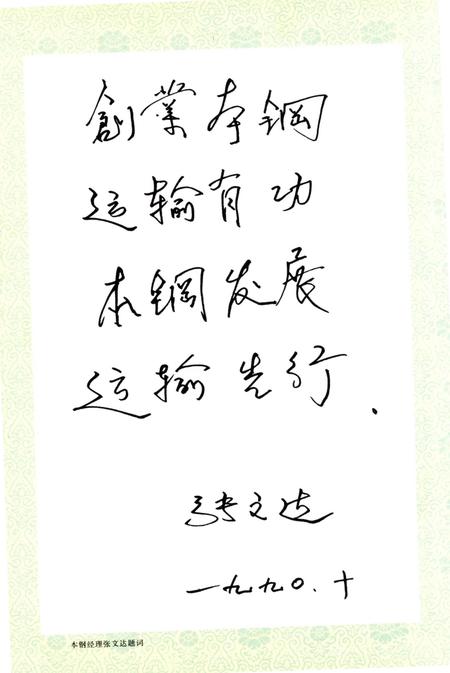 創業本鋼
运输有功
本鋼发展
运输先行.
张文达
一九九〇.十
本钢经理张文达题词